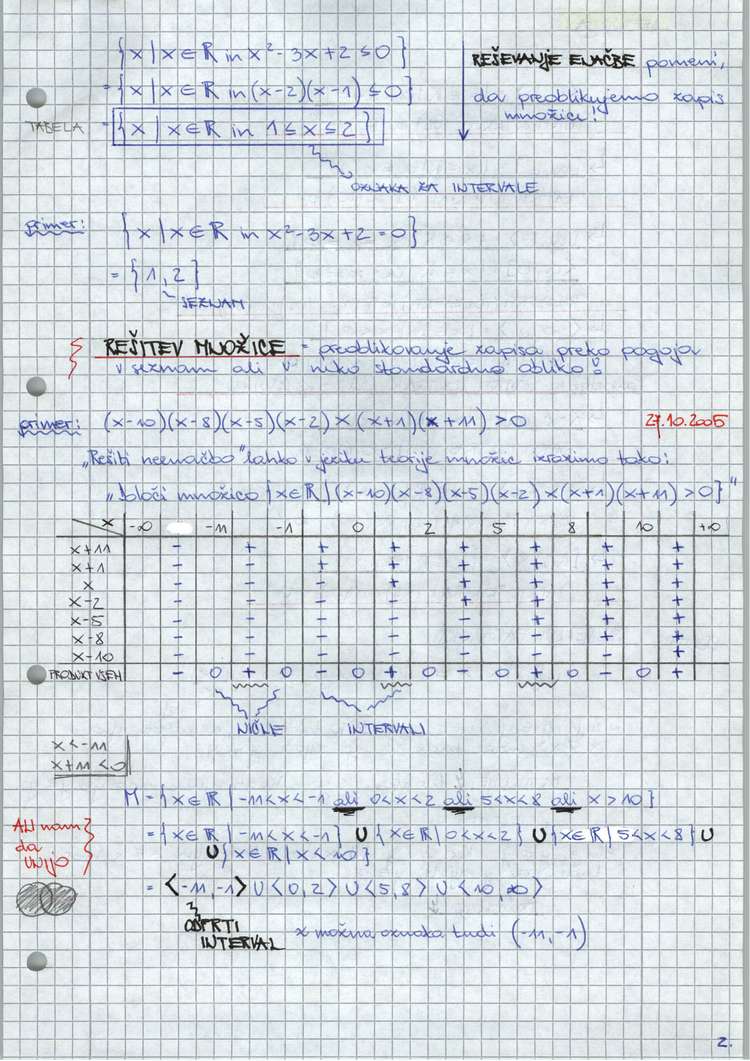 {x | x ∈ ℝ in x² - 3x + 2 ≤ 0}
= {x | x ∈ ℝ in (x-2)(x-1) ≤ 0}
TABELA = {x | x ∈ ℝ in 1 ≤ x ≤ 2}
OZNAKA ZA INTERVALE
REŠEVANJE ENAČBE pomeni,
da preoblikujemo zapis
množice!
primer: {x | x ∈ ℝ in x² - 3x + 2 = 0}
= {1, 2}
SEZNAM
REŠITEV MNOŽICE = preoblikovanje zapisa preko pogoja
v seznam ali v neko standardno obliko!
primer: (x-10)(x-8)(x-5)(x-2)x(x+1)(x+11) > 0 27.10.2005
„Rešiti neenačbo" lahko v jeziku teorije množic izrazimo tako:
„Določi množico {x ∈ ℝ | (x-10)(x-8)(x-5)(x-2)x(x+1)(x+11) > 0}"
x -∞ -11 -1 0 2 5 8 10 +∞
x+11 - + + + + + + +
x+1 - - + + + + + +
x - - - + + + + +
x-2 - - - - + + + +
x-5 - - - - - + + +
x-8 - - - - - - + +
x-10 - - - - - - - +
PRODUKT VSEH - 0 + 0 - 0 + 0 - 0 + 0 - 0 +
NIČLE INTERVALI
x < -11
x+11 < 0
M = {x ∈ ℝ | -11 < x < -1 ali 0 < x < 2 ali 5 < x < 8 ali x > 10}
ALI nam
da
UNIJO
= {x ∈ ℝ | -11 < x < -1} ∪ {x ∈ ℝ | 0 < x < 2} ∪ {x ∈ ℝ | 5 < x < 8} ∪
∪ {x ∈ ℝ | x < 10}
= <-11, -1> ∪ <0, 2> ∪ <5, 8> ∪ <10, ∞>
ODPRTI
INTERVAL
možna oznaka tudi (-11, -1)
2.